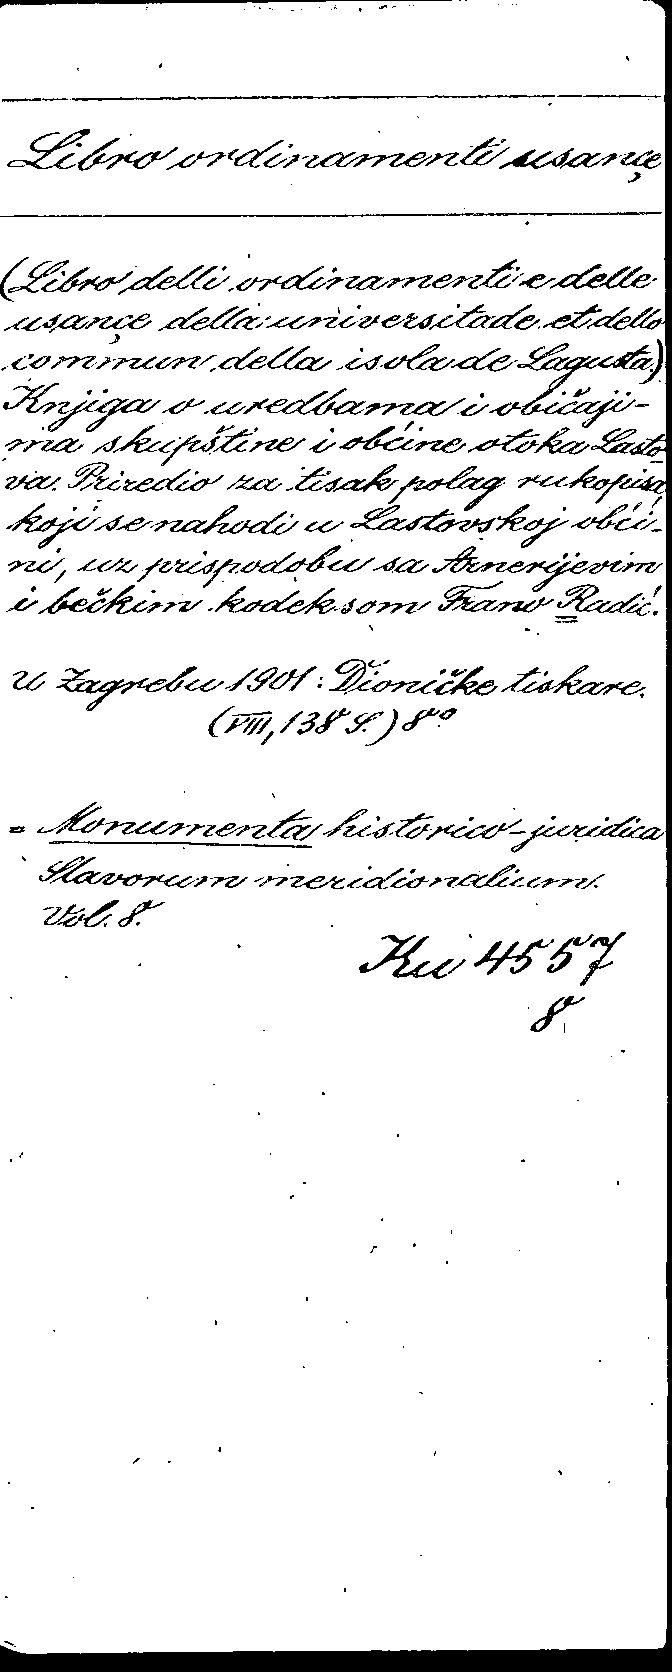 Libro ordinamenti usançe
(Libro delli ordinamenti e delle
usançe della universitade et dello
commun della isola de Lagusta.)
Knjiga o uredbama i običaji-
ma skupštine i obćine otoka Lasto-
va. Priredio za tisak polag rukopisa,
koji se nahodi u Lastovskoj obći-
ni, uz prispodobu sa Arnerijevim
i bečkim kodeksom Frano Radić.
U Zagrebu 1901: Dioničke tiskare.
(VIII, 138 S.) 8°
= Monumenta historico-juridica
Slavorum meridionalium.
Vol. 8.
Ku 4557
8